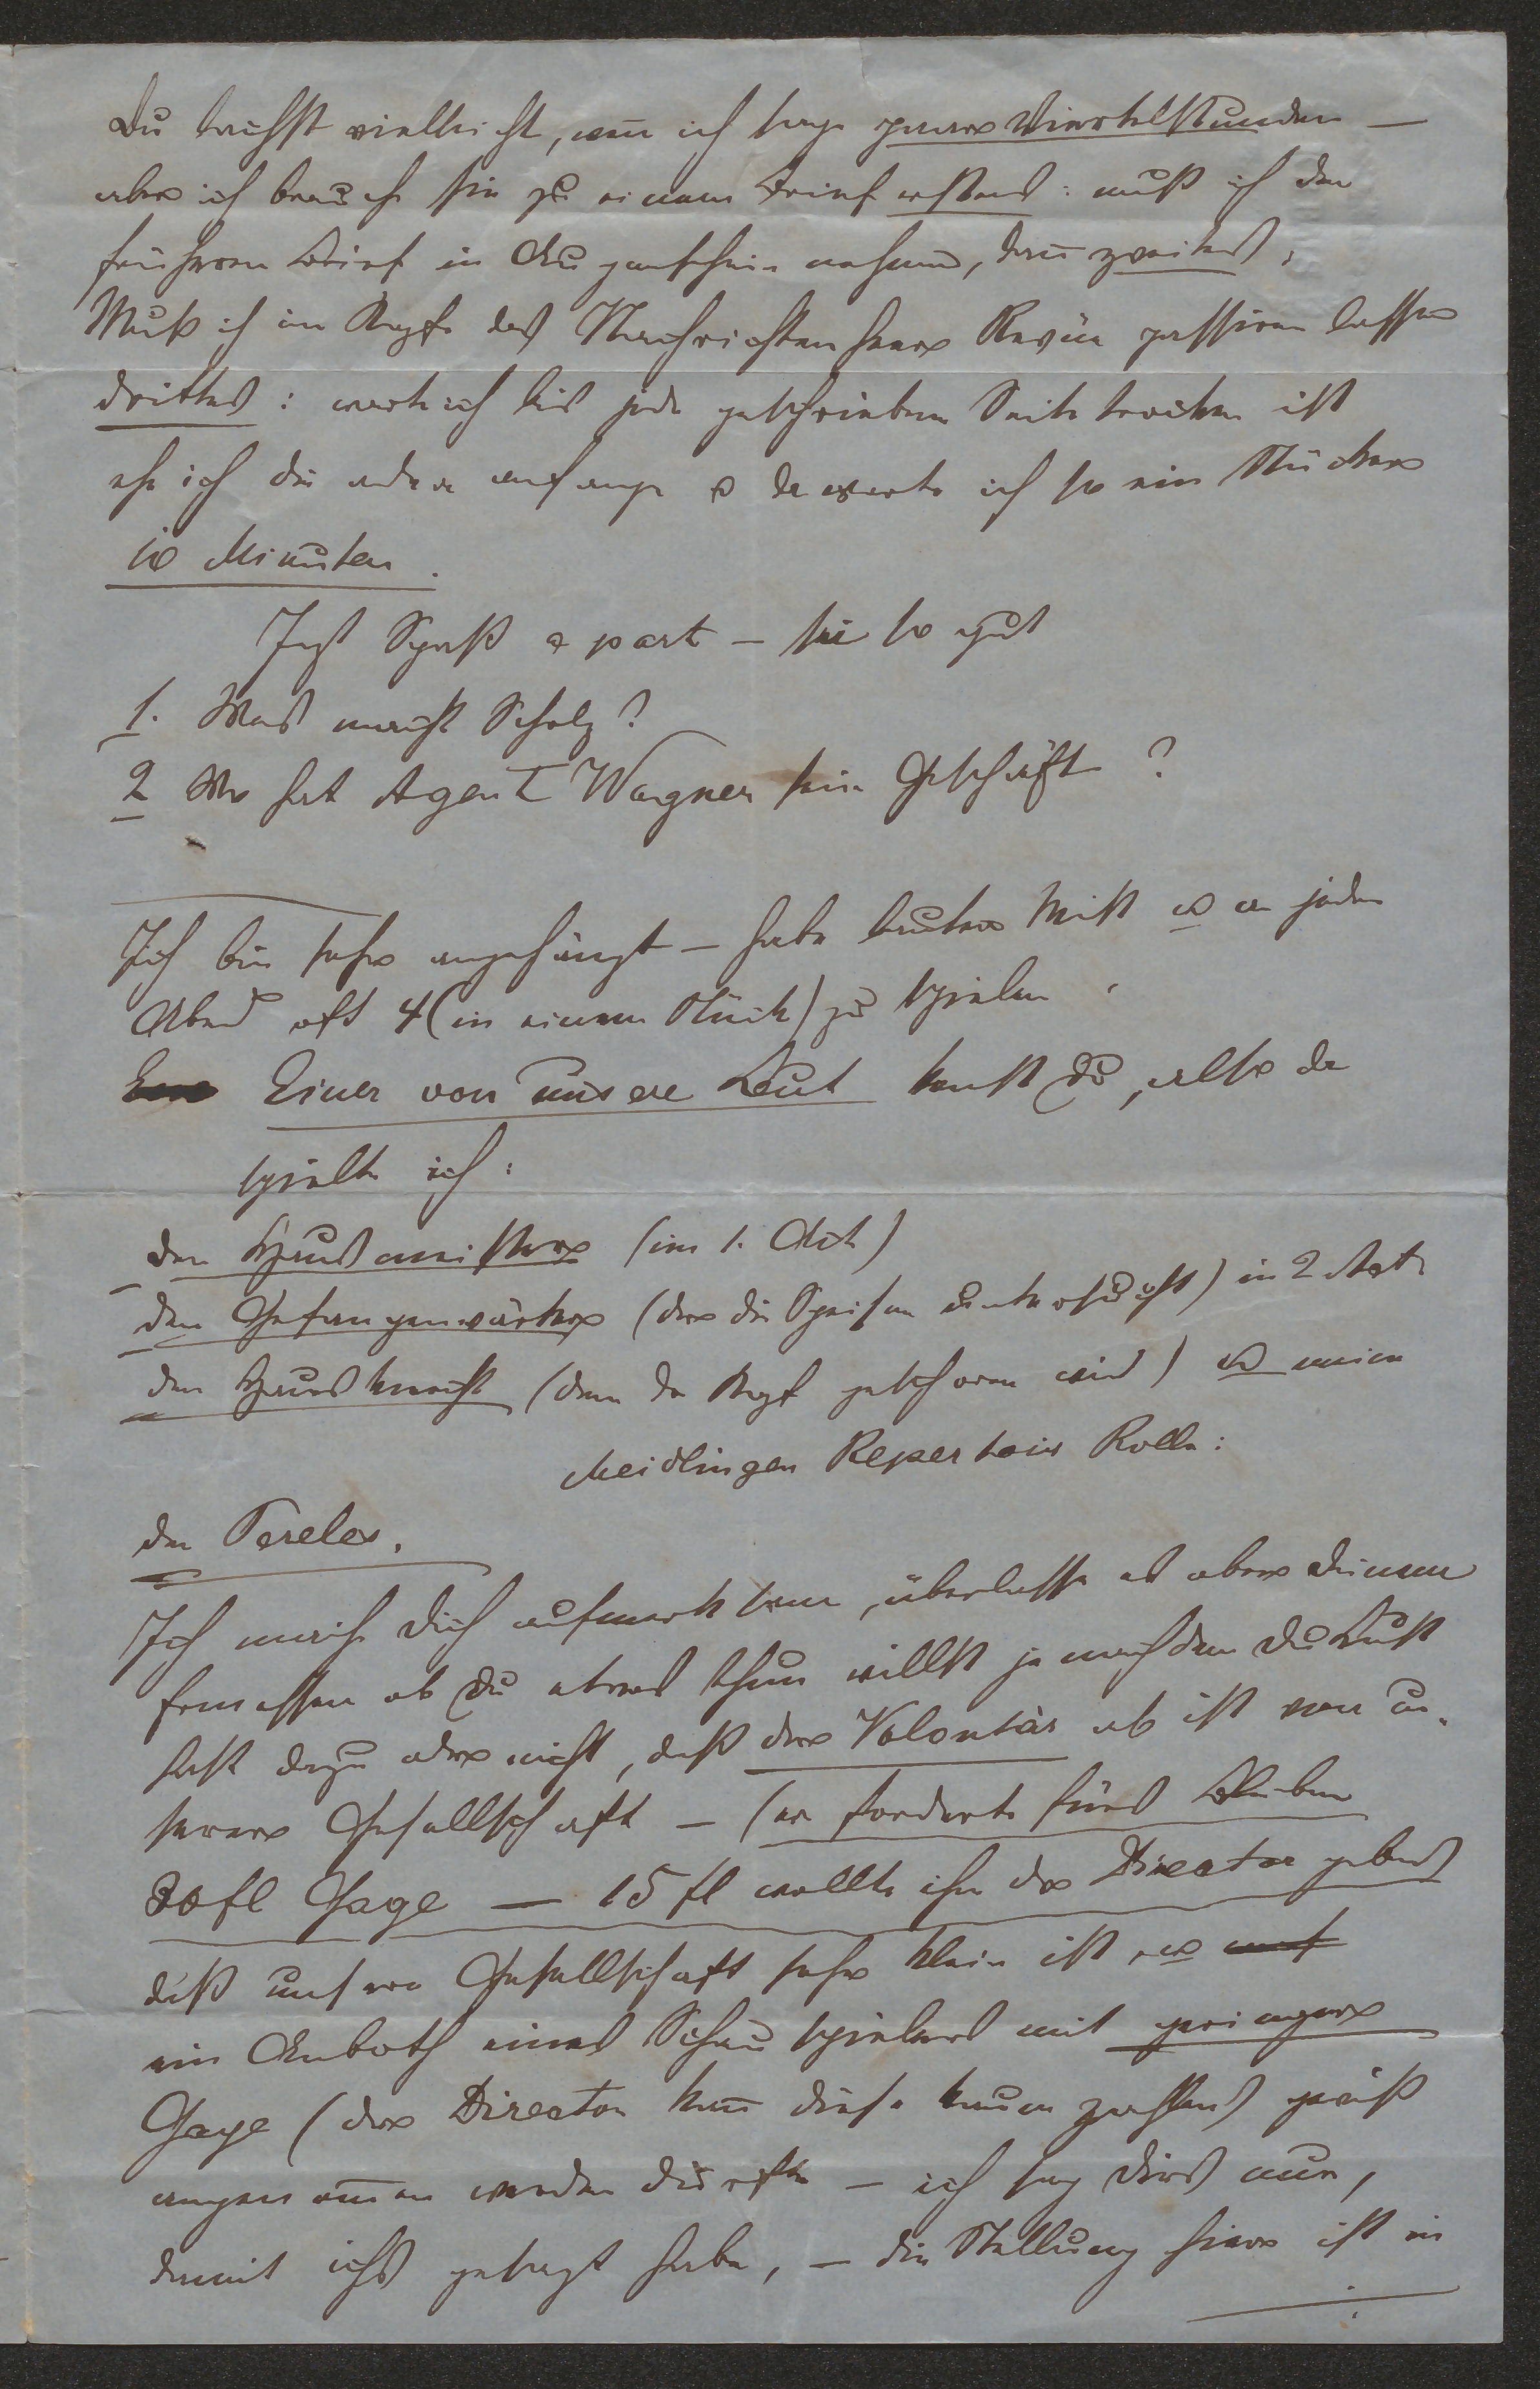 Du lachst vielleicht, wen̄ ich sage paar Viertelstunden —
aber ich brauche sie zu einem Brief erstens: muß ich den
früheren Brief in Augenschein nehmen, dan̄ zweitens,
Muß ich im Kopfe das Nachrichtenheer Revüe passiren lassen
drittens: warte ich bis jede geschriebene Seite trocken ist
ehe ich die andere anfange u da warte ich so ein Stücker
10 Minuten.
Jezt Spaß a part — sei so gut
1. Was macht Scholz?
2 Wo hat Agent Wagner sein Geschäft?
Ich bin sehr angehängt — habe lauter Mist u an jeden
Abend oft 4 (in einem Stück) zu spielen.
Einer von unsere Leut kenst Du, also da
spielte ich:
den Hausmeister (im 1. Akt)
den Gefangenwärter (der die Speisen untersucht) in 2 Act
den Hausknecht (dem der Kopf geschoren wird) u meine
Meidlinger Repertoir Rolle:
den Pereles.
Ich mache Dich aufmerksam, überlasse es aber Deinem
Ermessen ob Du etwas thun willst je nachdem Du Lust
hast dazu oder nicht, daß der Volontär ab ist von un-
serer Gesellschaft — (er forderte fürs Bleiben
30 fl Gage — 15 fl wollte ihm der Director geben)
daß unsere Gesellschaft sehr klein ist, u
ein Anboth eines Schauspielers mit geringer
Gage (der Director kan̄ diese kaum zahlen) gewiß
angenom̄en werden dürfte — ich sag Dirs nur,
damit ichs gesagt habe, — die Stellung hier ist ein